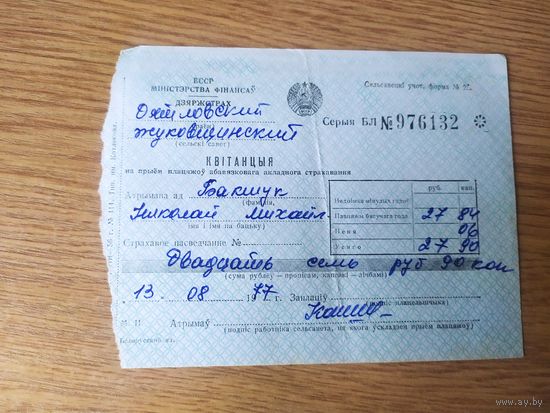 БССР
МІНІСТЭРСТВА ФІНАНСАЎ
ДЗЯРЖСТРАХ
Сельсавецкі учот. форма №
Серыя БЛ № 976132
жуковщинский
(сельскі савет)
КВІТАНЦЫЯ
на прыём плацяжоў абавязковага акладнога страхавання
Атрымана ад Бакшук
(фамілія,
Николай Михайл
імя і імя па бацьку)
руб. кап.
Нядоімка мінулых гадоў
Плацяжы бягучага года 27 84
Пеня 06
Усяго 27 90
Страхавое пасведчанне №
Двадцать семь руб 90 коп
(сума рублеў — прописам, капеек — лічбамі)
13 08 1977 г. Заплаціў
(подпіс плацельшчыка)
М. П. Атрымаў
(подпіс работніка сельсавета, на якога ўскладзен прыём плацяжоў)
www.ay.by